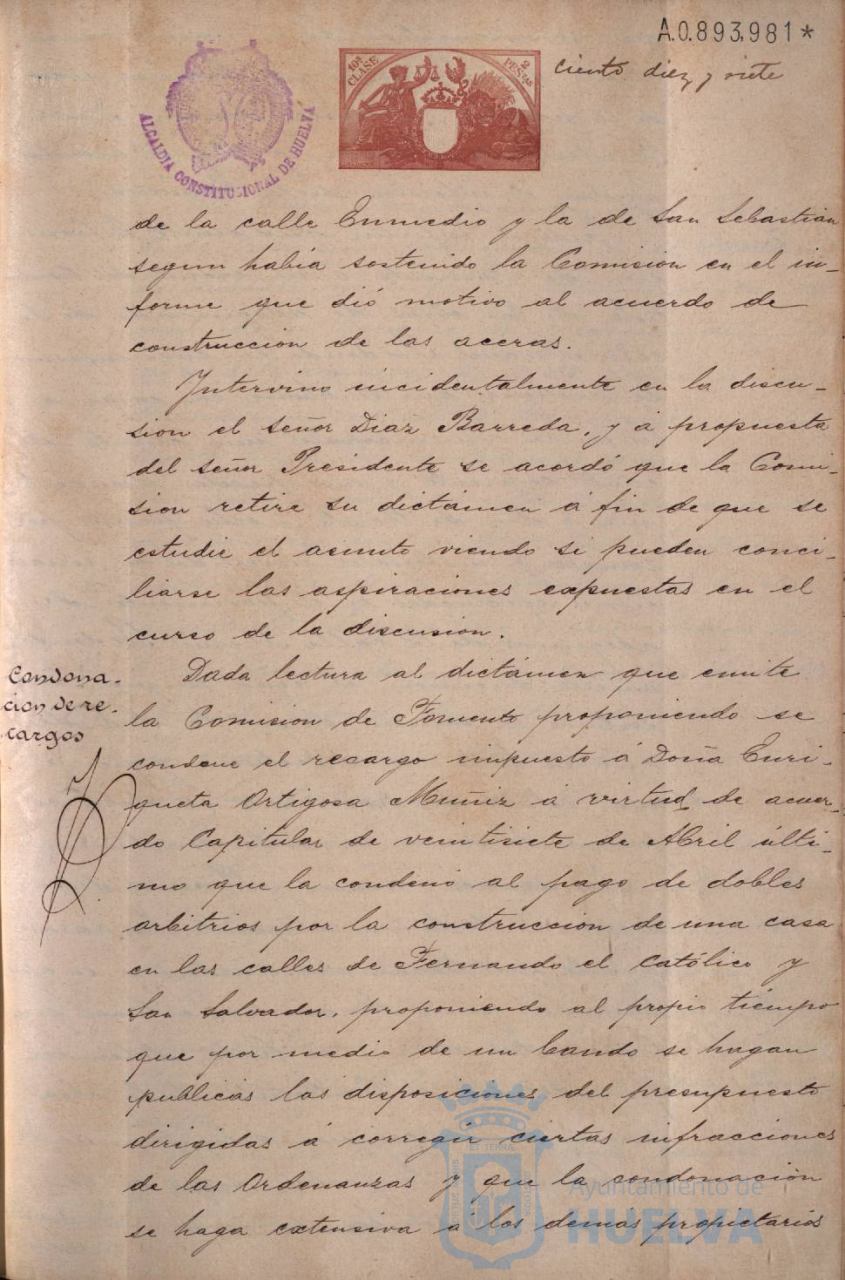 A.0.893,981*
ciento diez y siete
10ª CLASE
2 PESTAS
ALCALDIA CONSTITUCIONAL DE HUELVA
de la calle Enmedio y la de San Sebastian
segun habia sostenido la Comision en el in-
forme que dió motivo al acuerdo de
construccion de las aceras.
Intervino incidentalmente en la discu-
sion el señor Diaz Barreda, y á propuesta
del señor Presidente se acordó que la Comi-
sion retire su dictámen á fin de que se
estudie el asunto viendo si pueden conci-
liarse las aspiraciones expuestas en el
curso de la discusion.
Condona-
cion de re-
cargos
Dada lectura al dictámen que emite
la Comision de Fomento proponiendo se
condone el recargo impuesto á Doña Enri-
queta Ortigosa Muñiz á virtud de acuer-
do Capitular de veintisiete de Abril últi-
mo que la condenó al pago de dobles
arbitrios por la construccion de una casa
en las calles de Fernando el Católico y
San Salvador, proponiendo al propio tiempo
que por medio de un bando se hagan
publicas las disposiciones del presupuesto
dirigidas á corregir ciertas infracciones
de las Ordenanzas y que la condonación
se haga extensiva á los demas propietarios
Ayuntamiento de
HUELVA